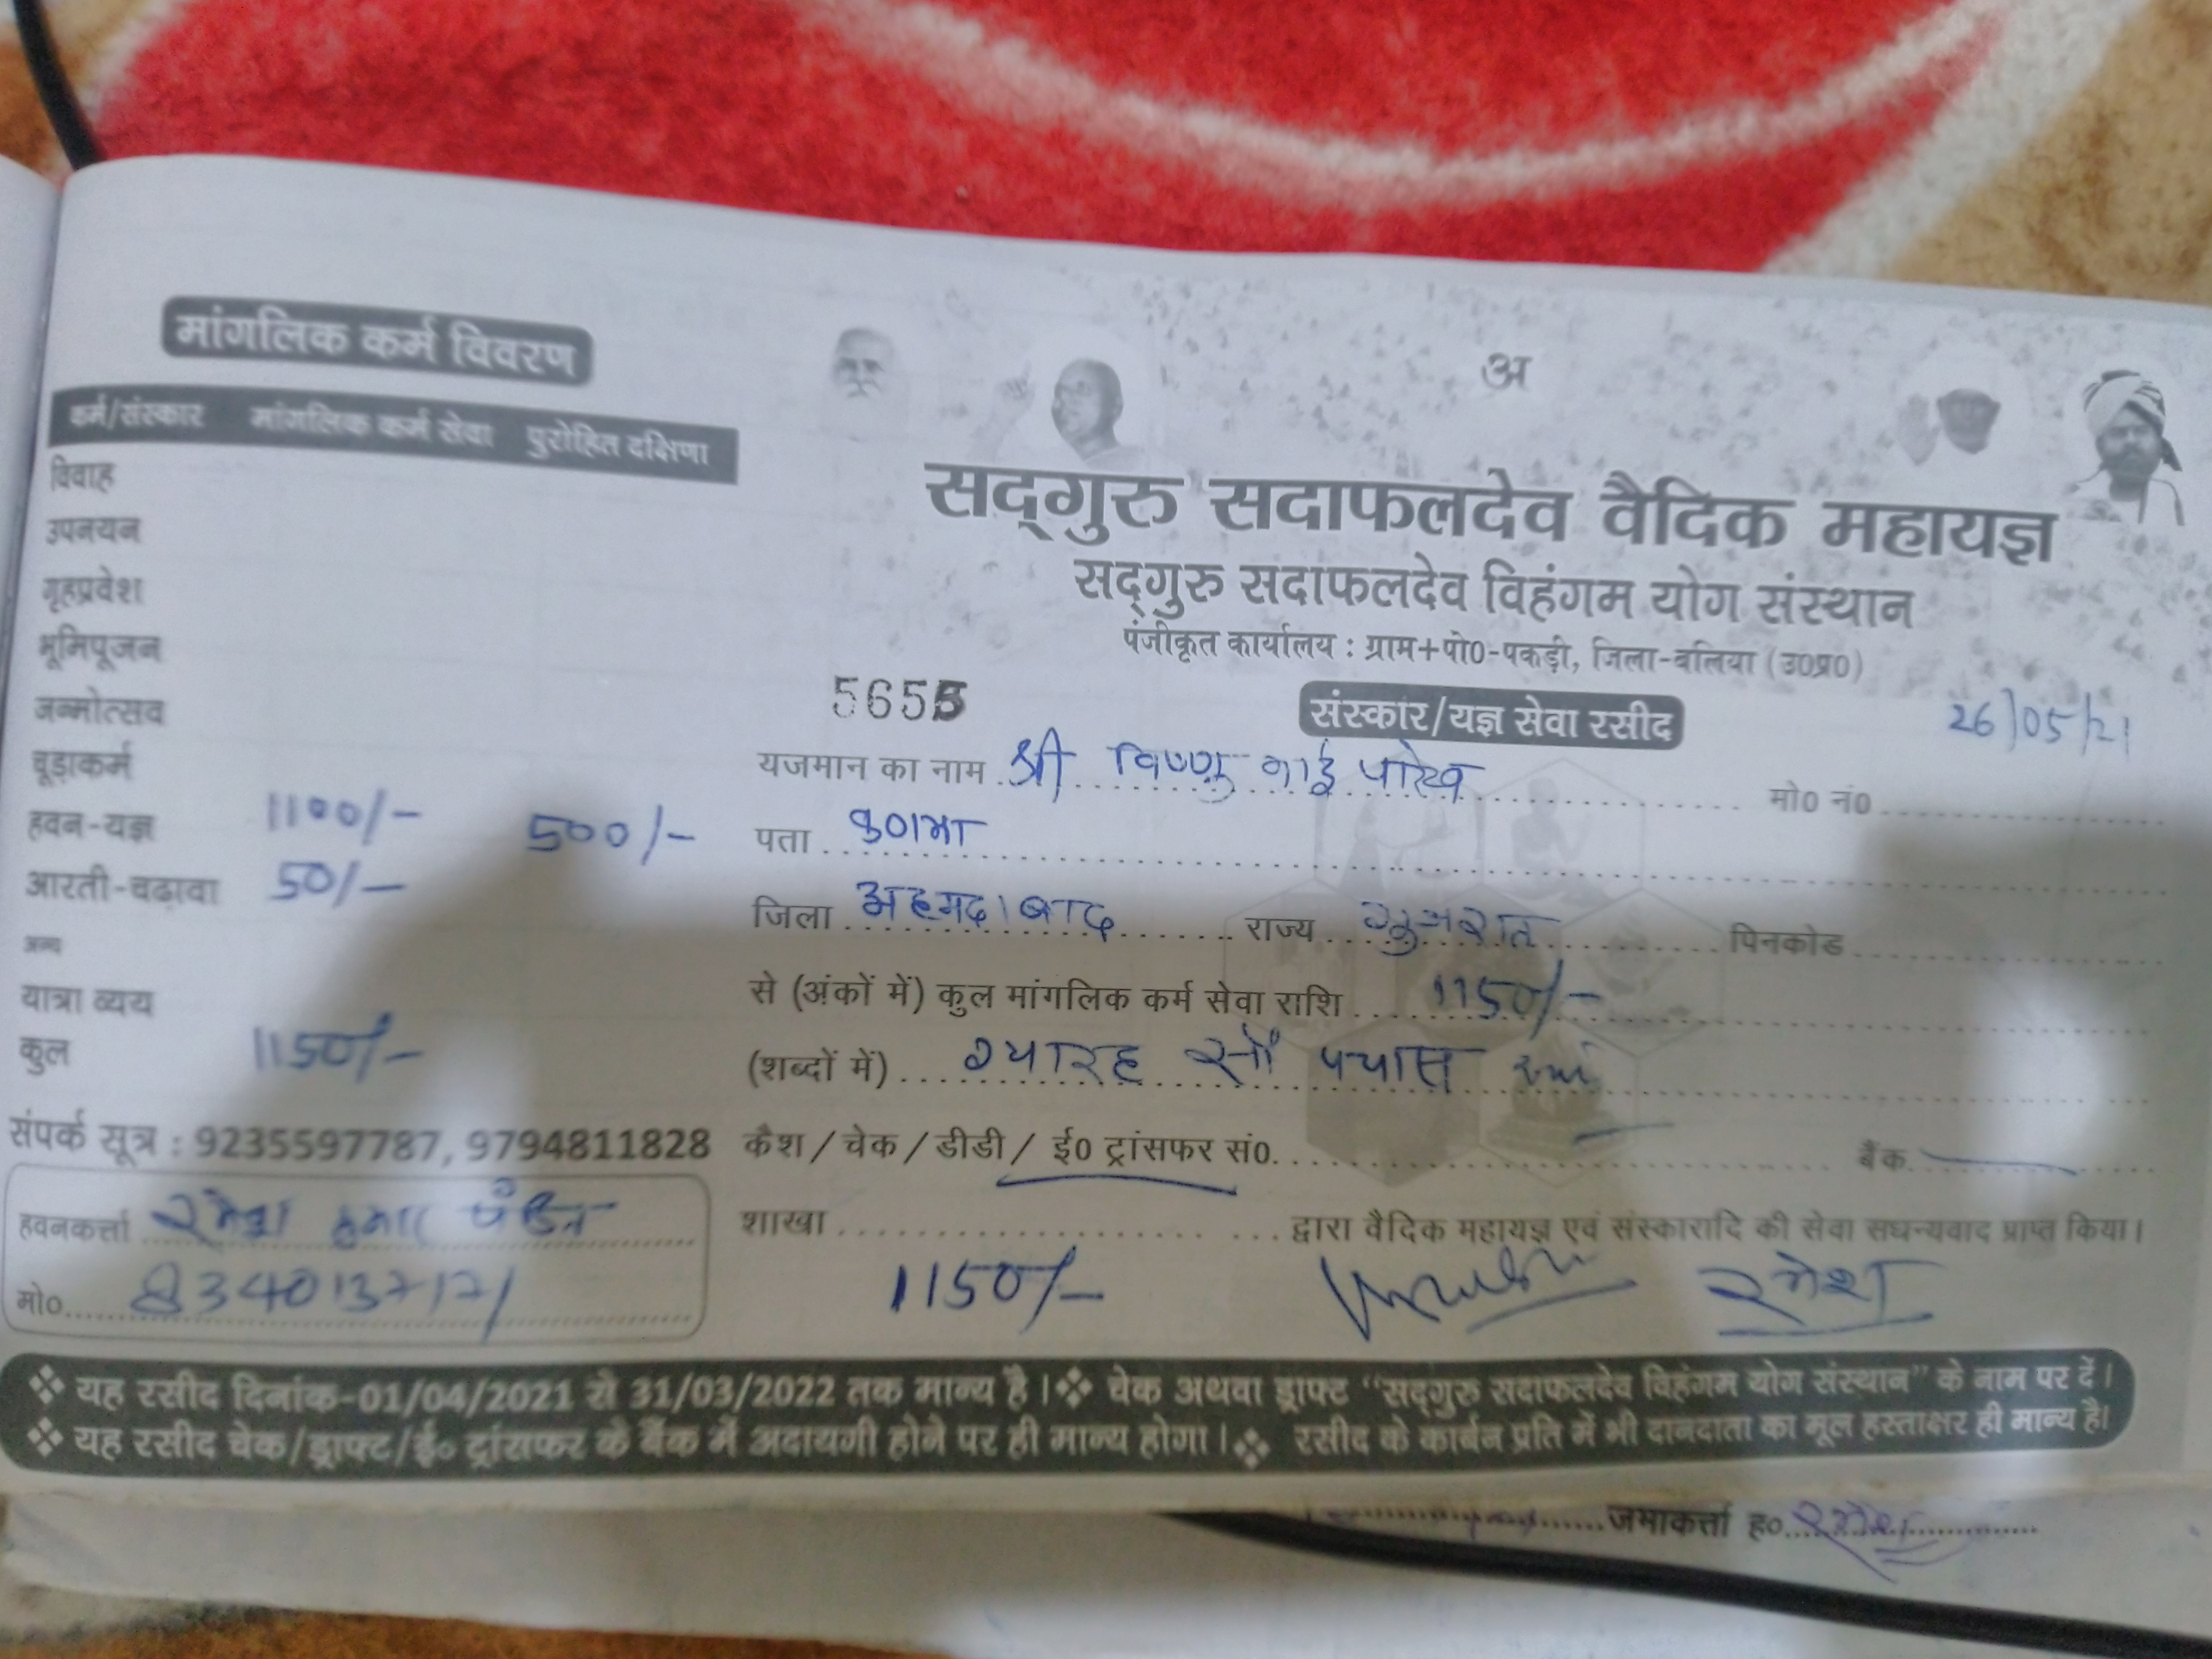 मांगलिक कर्म विवरण
कर्म/संस्कार मांगलिक कर्म सेवा पुरोहित दक्षिणा
विवाह
उपनयन
गृहप्रवेश
भूमिपूजन
जन्मोत्सव
चूड़ाकर्म
हवन-यज्ञ 1100/- 500/-
आरती-चढ़ावा 50/-
अन्य
यात्रा व्यय
कुल 1150/-
संपर्क सूत्र : 9235597787, 9794811828
हवनकर्त्ता रमेश कुमार पंडित
मो०
अ
सद्गुरु सदाफलदेव वैदिक महायज्ञ
सद्गुरु सदाफलदेव विहंगम योग संस्थान
पंजीकृत कार्यालय : ग्राम+पो0-पकड़ी, जिला-बलिया (उ0प्र0)
5655 संस्कार/यज्ञ सेवा रसीद 26/05/21
यजमान का नाम श्री विष्णु भाई पारेख मो0 नं0
पता
जिला अहमदाबाद राज्य गुजरात पिनकोड
से (अंकों में) कुल मांगलिक कर्म सेवा राशि 1150/-
(शब्दों में) ग्यारह सौ पचास
कैश / चेक / डीडी / ई0 ट्रांसफर सं0. बैंक
शाखा द्वारा वैदिक महायज्ञ एवं संस्कारादि की सेवा सधन्यवाद प्राप्त किया।
1150/- रमेश
❖ यह रसीद दिनांक-01/04/2021 से 31/03/2022 तक मान्य है।❖ चेक अथवा ड्राफ्ट "सद्गुरु सदाफलदेव विहंगम योग संस्थान" के नाम पर दें।
❖ यह रसीद चेक/ड्राफ्ट/ई० ट्रांसफर के बैंक में अदायगी होने पर ही मान्य होगा।❖ रसीद के कार्बन प्रति में भी दानदाता का मूल हस्ताक्षर ही मान्य है।
जमाकर्त्ता ह० रमेश